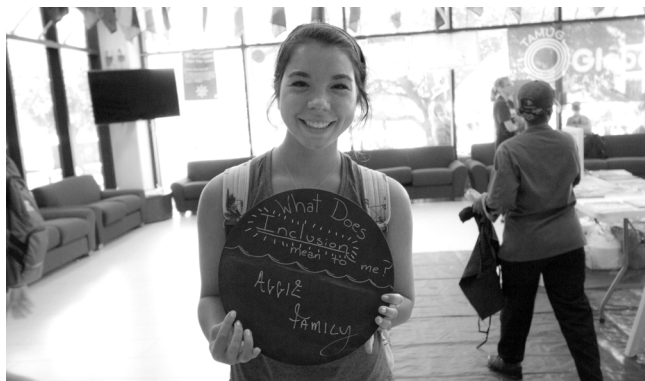 TAMUG
Glob
What Does
Inclusion
mean to me?
AGGIE
FAMILY